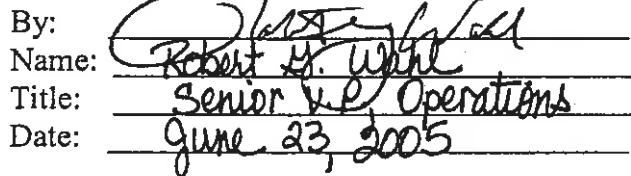 By:
Name: Robert G. Wahl
Title: Senior V.P., Operations
Date: June 23, 2005